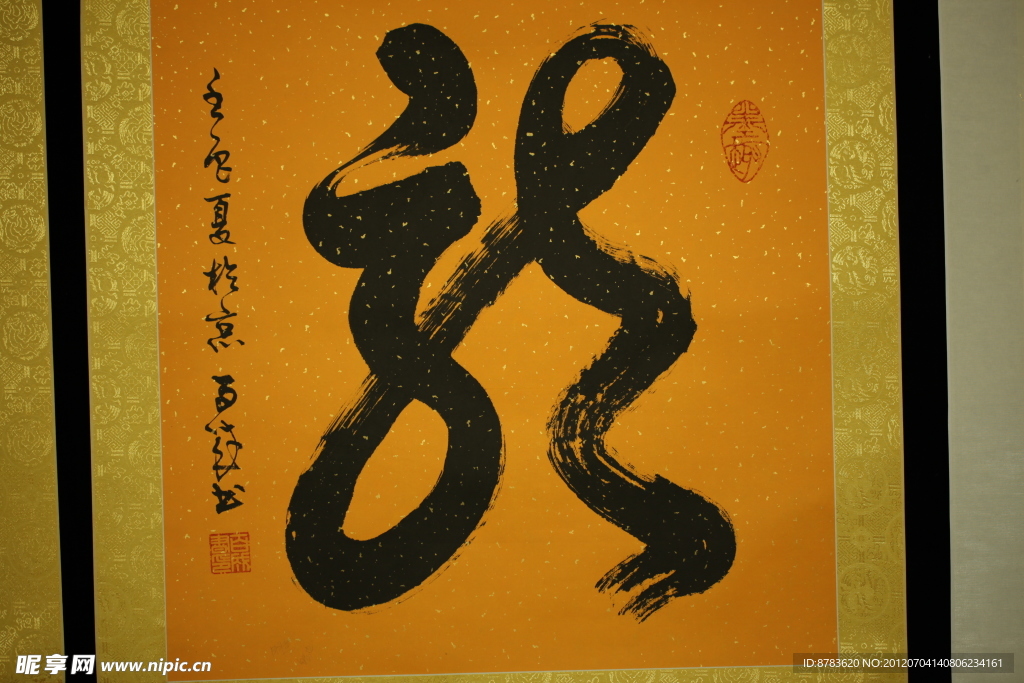 龍
壬辰夏於京
昵享网 www.nipic.cn
ID:8783620 NO:20120704140806234161